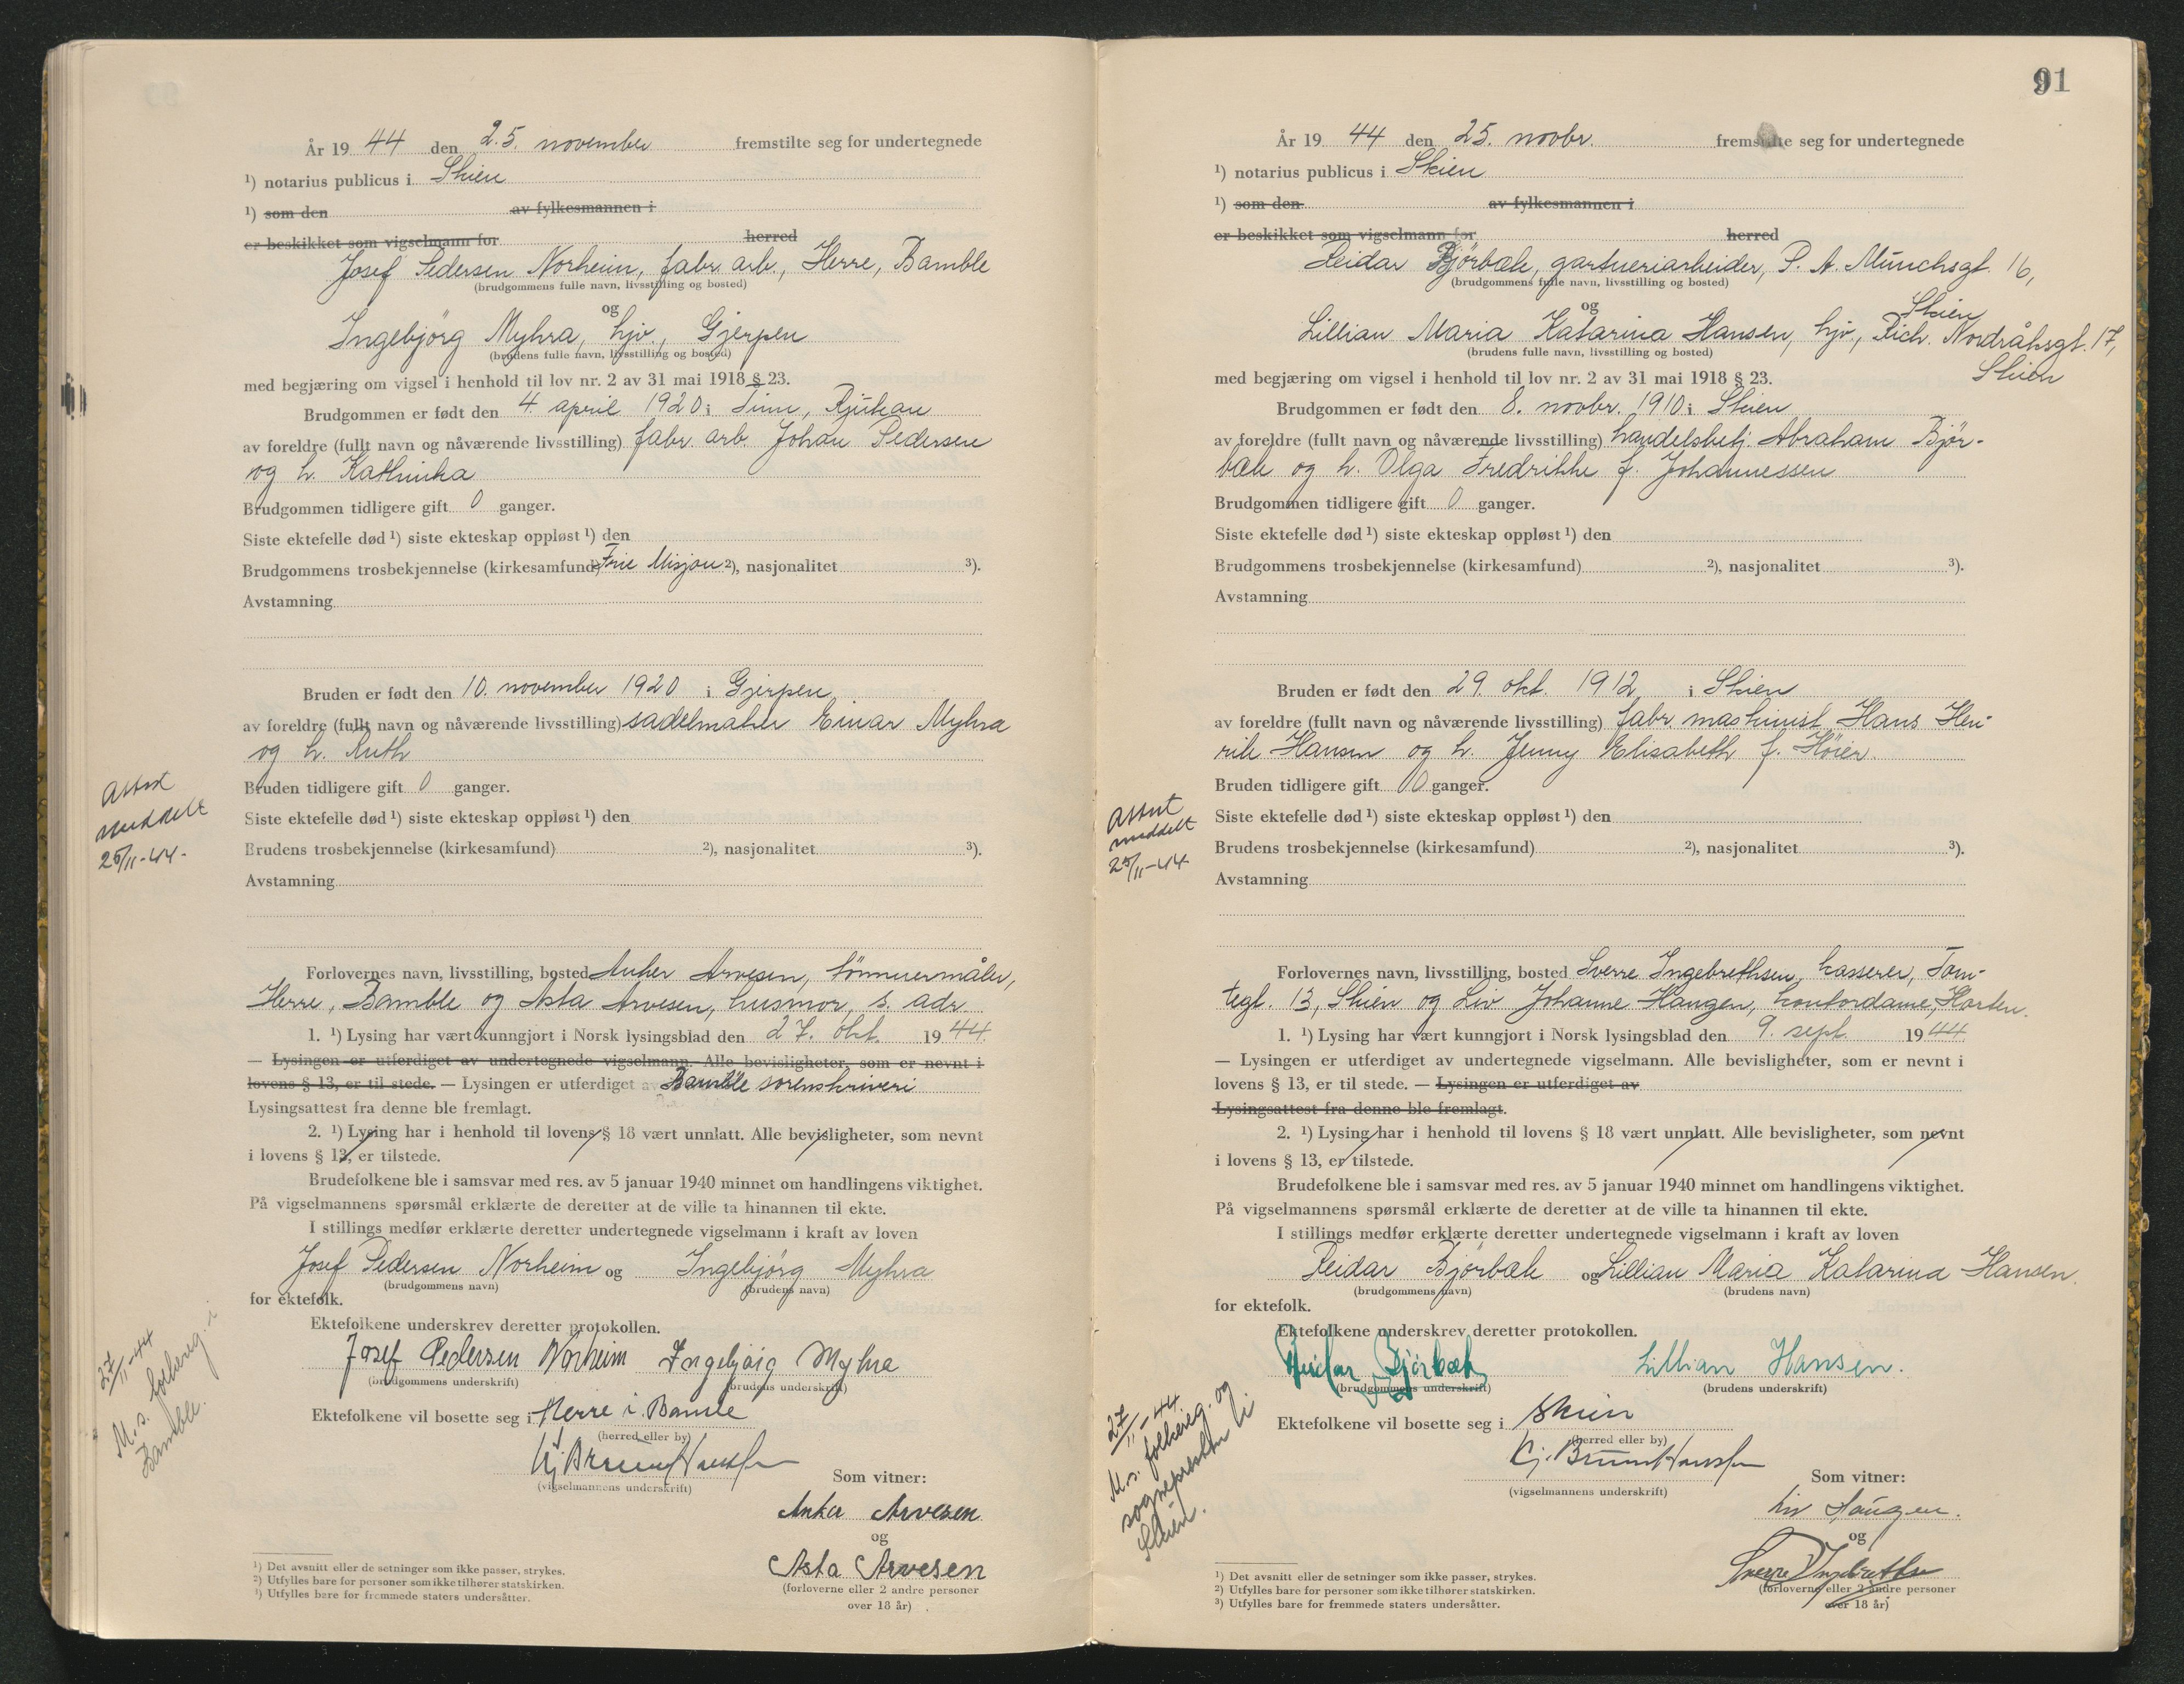 År 1944 den 25. november fremstilte seg for undertegnede
¹) notarius publicus i Skien
¹) som den av fylkesmannen i
er beskikket som vigselmann for herred
Josef Pedersen Norheim, fabr. arb., Herre, Bamble
(brudgommens fulle navn, livsstilling og bosted)
og
Ingebjörg Myhra, hjv., Gjerpen
(brudens fulle navn, livsstilling og bosted)
med begjæring om vigsel i henhold til lov nr. 2 av 31 mai 1918 § 23.
Brudgommen er født den 4. april 1920 i Tinn, Rjukan
av foreldre (fullt navn og nåværende livsstilling) fabr. arb. Johan Pedersen
og h. Kathinka
Brudgommen tidligere gift 0 ganger.
Siste ektefelle død ¹) siste ekteskap oppløst ¹) den
Brudgommens trosbekjennelse (kirkesamfund) Frie Misjon ²), nasjonalitet ³).
Avstamning
Bruden er født den 10. november 1920 i Gjerpen
av foreldre (fullt navn og nåværende livsstilling) sadelmaker Einar Myhra
og h. Ruth
Bruden tidligere gift 0 ganger.
Siste ektefelle død ¹) siste ekteskap oppløst ¹) den
Brudens trosbekjennelse (kirkesamfund) ²), nasjonalitet ³).
Avstamning
Attest
meddelt
25/11-44.
Forlovernes navn, livsstilling, bosted Anker Arvesen, tömmermåler,
Herre, Bamble og Asta Arvesen, husmor, s. adr.
1. ¹) Lysing har vært kunngjort i Norsk lysingsblad den 27. okt. 1944
— Lysingen er utferdiget av undertegnede vigselmann. Alle bevisligheter, som er nevnt i
lovens § 13, er til stede. — Lysingen er utferdiget av Bamble sorenskriveri
Lysingsattest fra denne ble fremlagt.
2. ¹) Lysing har i henhold til lovens § 18 vært unnlatt. Alle bevisligheter, som nevnt
i lovens § 13, er tilstede.
Brudefolkene ble i samsvar med res. av 5 januar 1940 minnet om handlingens viktighet.
På vigselmannens spørsmål erklærte de deretter at de ville ta hinannen til ekte.
I stillings medfør erklærte deretter undertegnede vigselmann i kraft av loven
Josef Pedersen Norheim og Ingebjörg Myhra
(brudgommens navn) (brudens navn)
for ektefolk.
Ektefolkene underskrev deretter protokollen.
Josef Pedersen Norheim Ingebjörg Myhra
(brudgommens underskrift) (brudens underskrift)
Ektefolkene vil bosette seg i Herre i Bamle
(herred eller by)
27/11-44
M.s. folkereg. i
Bamble.
(vigselmannens underskrift)
Som vitner:
Anker Arvesen
og
Asta Arvesen
(forloverne eller 2 andre personer
over 18 år)
¹) Det avsnitt eller de setninger som ikke passer, strykes.
²) Utfylles bare for personer som ikke tilhører statskirken.
³) Utfylles bare for fremmede staters undersåtter.
91
År 1944 den 25. novbr. fremstilte seg for undertegnede
¹) notarius publicus i Skien
¹) som den av fylkesmannen i
er beskikket som vigselmann for herred
Reidar Bjørbæk, gartneriarbeider, P. A. Munchsgt. 16,
Skien
(brudgommens fulle navn, livsstilling og bosted)
og
Lillian Maria Katarina Hansen, hjv., Rich. Nordråksgt. 17,
Skien
(brudens fulle navn, livsstilling og bosted)
med begjæring om vigsel i henhold til lov nr. 2 av 31 mai 1918 § 23.
Brudgommen er født den 8. novbr. 1910 i Skien
av foreldre (fullt navn og nåværende livsstilling) handelsbetj. Abraham Bjør-
bæk og h. Olga Fredrikke f. Johannessen
Brudgommen tidligere gift 0 ganger.
Siste ektefelle død ¹) siste ekteskap oppløst ¹) den
Brudgommens trosbekjennelse (kirkesamfund) ²), nasjonalitet ³).
Avstamning
Bruden er født den 29. okt. 1912 i Skien
av foreldre (fullt navn og nåværende livsstilling) fabr. maskinist Hans Hen-
rik Hansen og h. Jenny Elisabeth f. Höier.
Bruden tidligere gift 0 ganger.
Siste ektefelle død ¹) siste ekteskap oppløst ¹) den
Brudens trosbekjennelse (kirkesamfund) ²), nasjonalitet ³).
Avstamning
Attest
meddelt
25/11-44
Forlovernes navn, livsstilling, bosted Sverre Ingebrethsen, kasserer, Tom-
tegt. 13, Skien og Liv Johanne Haugen, kontordame, Horten.
1. ¹) Lysing har vært kunngjort i Norsk lysingsblad den 9. sept. 1944
— Lysingen er utferdiget av undertegnede vigselmann. Alle bevisligheter, som er nevnt i
lovens § 13, er til stede. — Lysingen er utferdiget av
Lysingsattest fra denne ble fremlagt.
2. ¹) Lysing har i henhold til lovens § 18 vært unnlatt. Alle bevisligheter, som nevnt
i lovens § 13, er tilstede.
Brudefolkene ble i samsvar med res. av 5 januar 1940 minnet om handlingens viktighet.
På vigselmannens spørsmål erklærte de deretter at de ville ta hinannen til ekte.
I stillings medfør erklærte deretter undertegnede vigselmann i kraft av loven
Reidar Bjørbæk og Lillian Maria Katarina Hansen.
(brudgommens navn) (brudens navn)
for ektefolk.
Ektefolkene underskrev deretter protokollen.
Reidar Bjørbæk Lillian Hansen.
(brudgommens underskrift) (brudens underskrift)
Ektefolkene vil bosette seg i Skien
(herred eller by)
27/11-44.
M.s. folkereg. og
sognepresten i
Skien.
(vigselmannens underskrift)
Som vitner:
Liv Haugen.
og
Sverre Ingebrethsen
(forloverne eller 2 andre personer
over 18 år)
¹) Det avsnitt eller de setninger som ikke passer, strykes.
²) Utfylles bare for personer som ikke tilhører statskirken.
³) Utfylles bare for fremmede staters undersåtter.